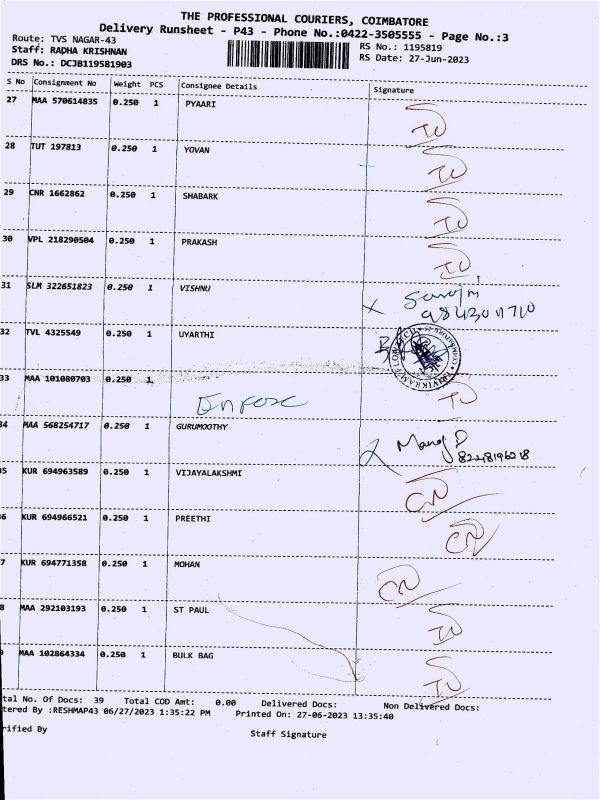 THE PROFESSIONAL COURIERS, COIMBATORE
Delivery Runsheet - P43 - Phone No.:0422-3505555 - Page No.:3
Route: TVS NAGAR-43 RS No.: 1195819
Staff: RADHA KRISHNAN RS Date: 27-Jun-2023
DRS No.: DCJB119581903
S No Consignment No Weight PCS Consignee Details Signature
27 MAA 570614835 0.250 1 PYAARI
28 TUT 197813 0.250 1 YOVAN
29 CNR 1662862 0.250 1 SHABARK
30 VPL 218290504 0.250 1 PRAKASH
31 SLM 322651823 0.250 1 VISHNU
32 TVL 4325549 0.250 1 UYARTHI
33 MAA 101080703 0.250 1
34 MAA 568254717 0.250 1 GURUMOOTHY
Manoj D
35 KUR 694963589 0.250 1 VIJAYALAKSHMI
6 KUR 694966521 0.250 1 PREETHI
7 KUR 694771358 0.250 1 MOHAN
8 MAA 292103193 0.250 1 ST PAUL
MAA 102864334 0.250 1 BULK BAG
tal No. Of Docs: 39 Total COD Amt: 0.00 Delivered Docs: Non Delivered Docs:
tered By :RESHMAP43 06/27/2023 1:35:22 PM Printed On: 27-06-2023 13:35:40
rified By Staff Signature